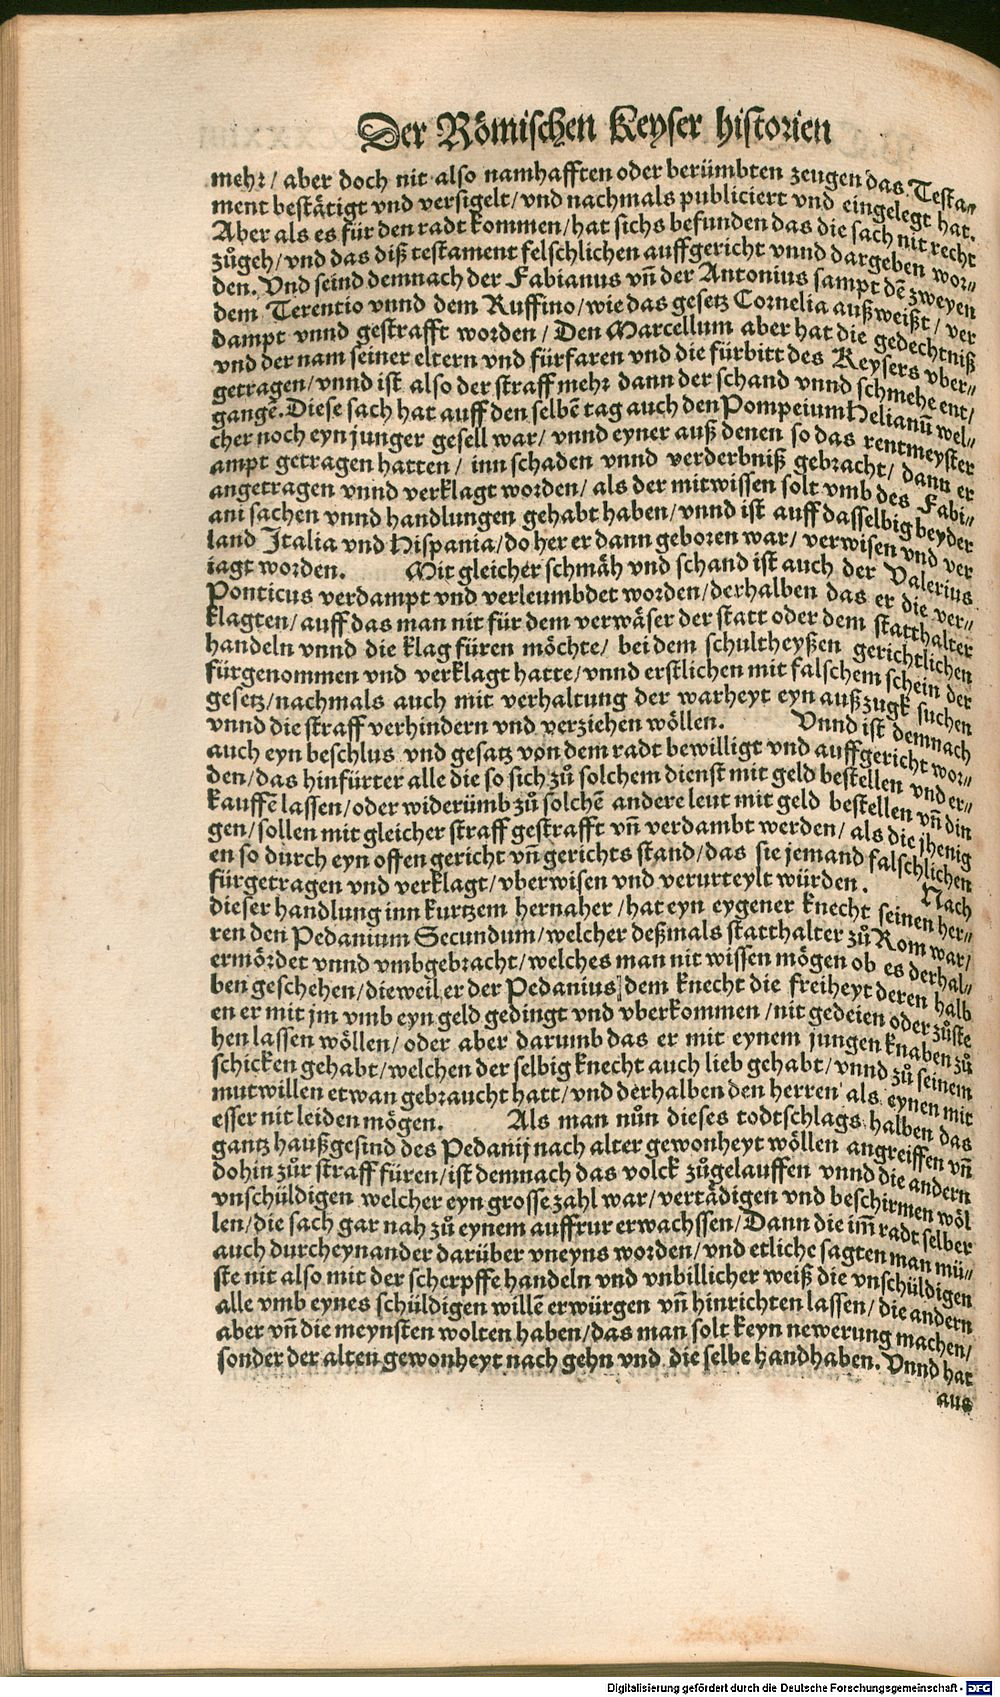 Der Römischen Keyser historien
mehr/ aber doch nit also namhafften oder berümbten zeugen das Testa⸗
ment bestätigt vnd versigelt/ vnd nachmals publiciert vnd eingelegt hat.
Aber als es für den radt kommen/ hat sichs befunden das die sach nit recht
zůgeh/ vnd das diß testament felschlichen auffgericht vnnd dargeben wor⸗
den. Vnd seind demnach der Fabianus vñ der Antonius sampt dẽ zweyen
dem Terentio vnnd dem Ruffino/ wie das gesetz Cornelia außweißt/ ver
dampt vnnd gestrafft worden/ Den Marcellum aber hat die gedechtniß
vnd der nam seiner eltern vnd fürfaren vnd die fürbitt des Keysers vber⸗
getragen/ vnnd ist also der straff mehr dann der schand vnnd schmehe ent/
gangẽ. Diese sach hat auff den selbẽ tag auch den Pompeium Helianũ wel⸗
cher noch eyn junger gesell war/ vnnd eyner auß denen so das rentmeyster
ampt getragen hatten/ inn schaden vnnd verderbniß gebracht/ dann er
angetragen vnnd verklagt worden/ als der mitwissen solt vmb des Fabi⸗
ani sachen vnnd handlungen gehabt haben/ vnnd ist auff dasselbig beyder
land Italia vnd Hispania/ do her er dann geboren war/ verwisen vnd ver
iagt worden. Mit gleicher schmäh vnd schand ist auch der Valerius
Ponticus verdampt vnd verleumbdet worden/ derhalben das er die ver⸗
klagten/ auff das man nit für dem verwäser der statt oder dem statthalter
handeln vnnd die klag füren möchte/ bei dem schultheyßen gerichtlichen
fürgenommen vnd verklagt hatte/ vnnd erstlichen mit falschem schein der
gesetz/ nachmals auch mit verhaltung der warheyt eyn außzugk suchen
vnnd die straff verhindern vnd verziehen wöllen. Vnnd ist demnach
auch eyn beschlus vnd gesatz von dem radt bewilligt vnd auffgericht wor⸗
den/ das hinfürter alle die so sich zů solchem dienst mit geld bestellen vnd er⸗
kauffẽ lassen/ oder widerümb zů solchẽ andere leut mit geld bestellen vñ din
gen/ sollen mit gleicher straff gestrafft vñ verdambt werden/ als die jhenig
en so durch eyn offen gericht vñ gerichts stand/ das sie jemand falschlichen
fürgetragen vnd verklagt/ vberwisen vnd verurteylt würden. Nach
dieser handlung inn kurtzem hernaher/ hat eyn eygener knecht seinen her⸗
ren den Pedanium Secundum/ welcher deßmals statthalter zů Rom war/
ermördet vnnd vmbgebracht/ welches man nit wissen mögen ob es derhal⸗
ben geschehen/ dieweil er der Pedanius dem knecht die freiheyt deren halb
en er mit jm vmb eyn geld gedingt vnd vberkommen/ nit gedeien oder zůste
hen lassen wöllen/ oder aber darumb das er mit eynem jungen knaben zů
schicken gehabt/ welchen der selbig knecht auch lieb gehabt/ vnnd zů seinem
mutwillen etwan gebraucht hatt/ vnd derhalben den herren als eynen mit
esser nit leiden mögen. Als man nůn dieses todtschlags halben das
gantz haußgesind des Pedanij nach alter gewonheyt wöllen angreiffen vñ
dohin zůr straff füren/ ist demnach das volck zůgelauffen vnnd die andern
vnschüldigen welcher eyn grosse zahl war/ vertädigen vnd beschirmen wöl
len/ die sach gar nah zů eynem auffrur erwachssen/ Dann die im̃ radt selber
auch durcheynander darüber vneyns worden/ vnd etliche sagten man mü⸗
ste nit also mit der scherpffe handeln vnd vnbillicher weiß die vnschüldigen
alle vmb eynes schüldigen willẽ erwürgen vñ hinrichten lassen/ die andern
aber vñ die meynsten wolten haben/ das man solt keyn newerung machen/
sonder der alten gewonheyt nach gehn vnd die selbe handhaben. Vnnd hat
aus
Digitalisierung gefördert durch die Deutsche Forschungsgemeinschaft - DFG